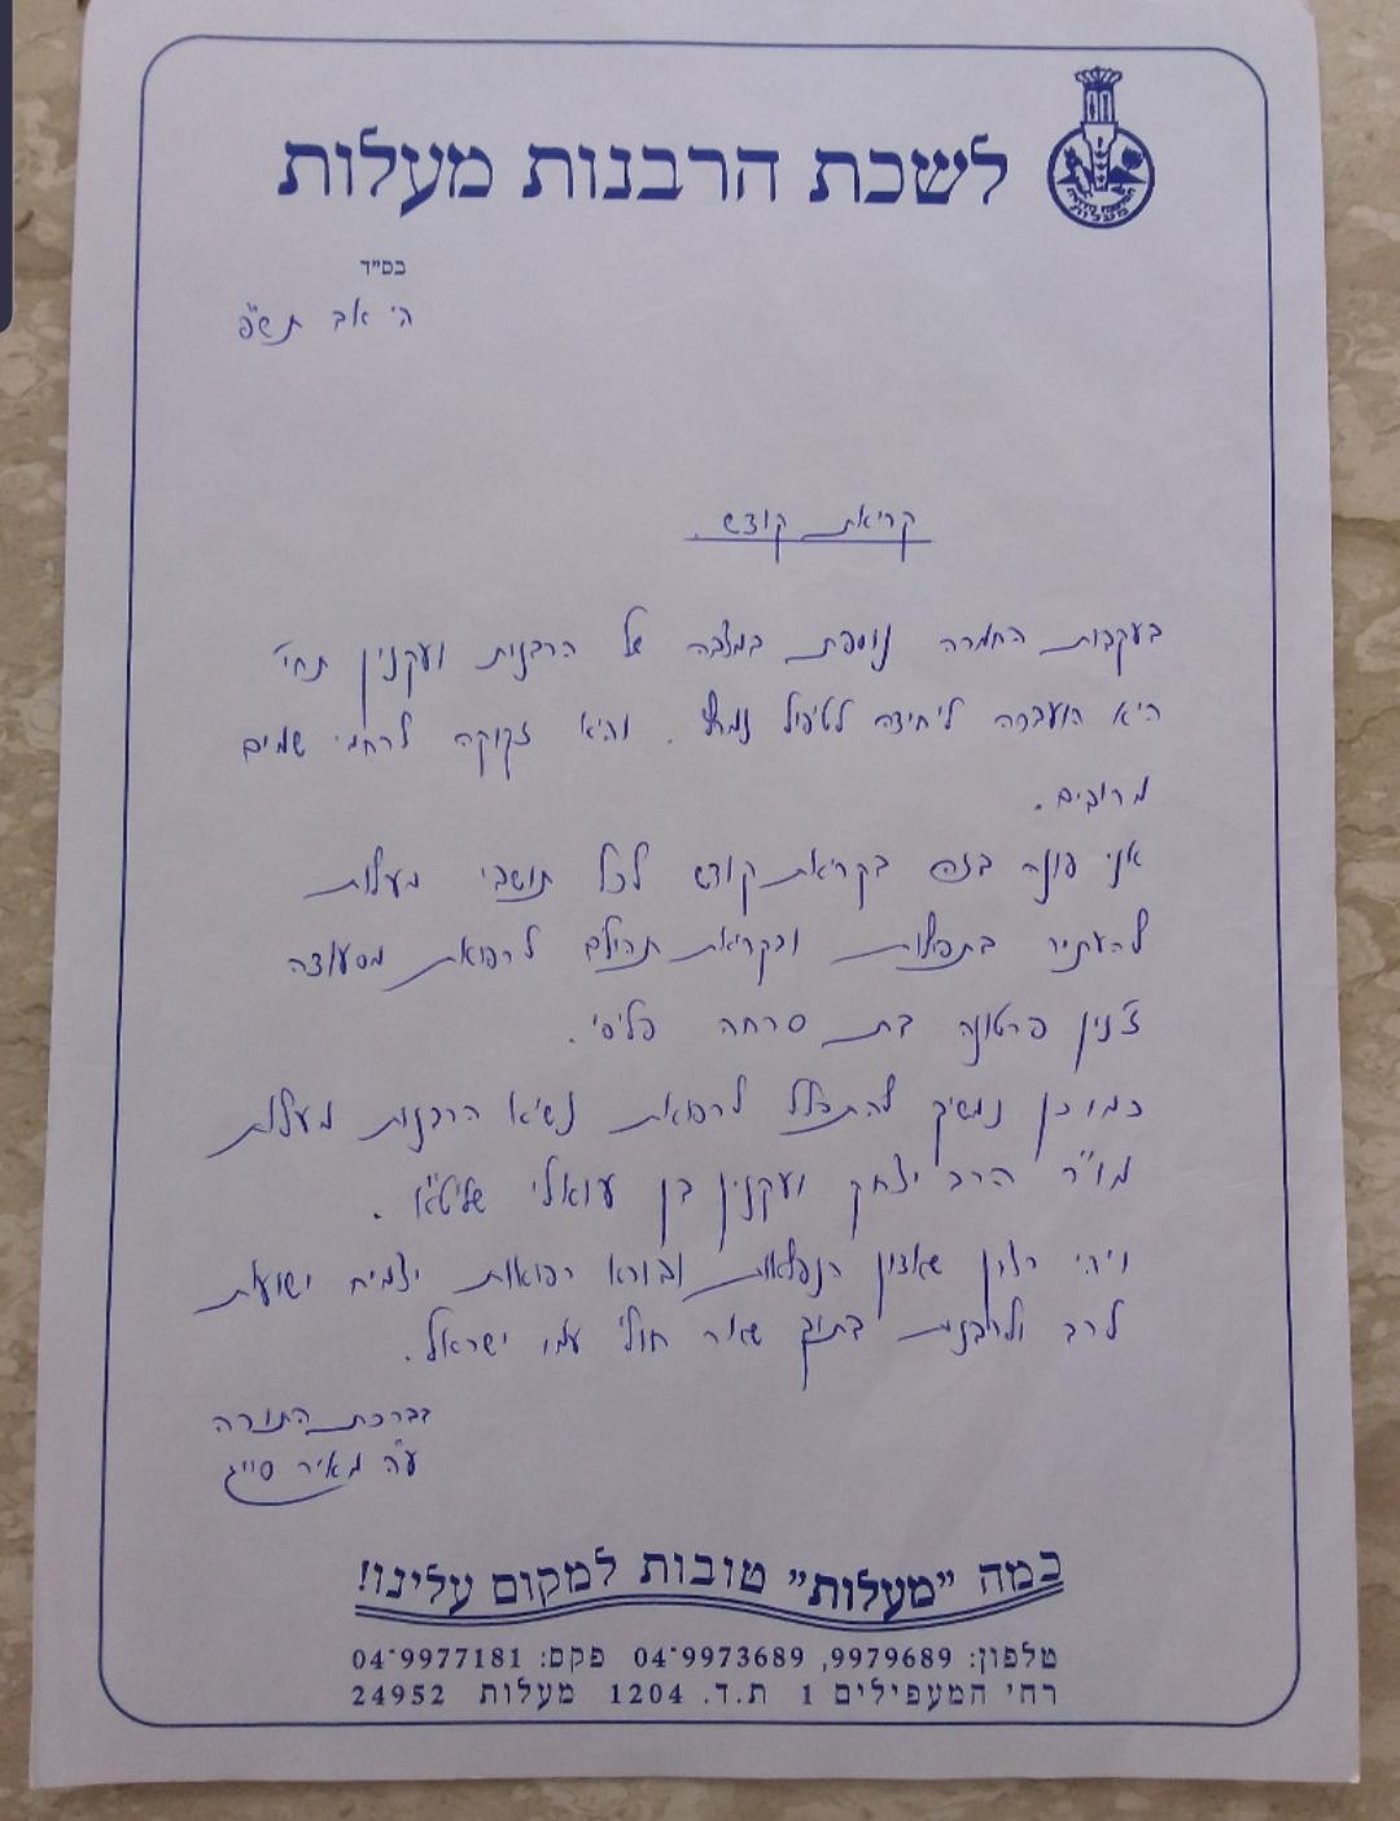 לשכת הרבנות מעלות
בס״ד
ה' אב תש"פ
קריאת קודש.
בעקבות החמרה נוספת במצבה של הרבנית ועקנין תחי'
היא הועברה ליחידה לטיפול נמרץ. והיא זקוקה לרחמי שמים
מרובים.
אני פונה בזה בקריאת קודש לכל תושבי מעלות
להעתיר בתפלות ובקריאת תהילים לרפואת מסעודה
ז'נין פרטונה בת סרחה פליסי.
כמו כן נמשיך להתפלל לרפואת נשיא הרבנות מעלות
מו"ר הרב יצחק ועקנין בן עואלי שליט"א.
ויהי רצון שאדון הנפלאות ובורא רפואות יצמיח ישועת
לרב ולרבנית בתוך שאר חולי עמו ישראל.
בברכת התורה
ע"ה מאיר סייג
כמה ״מעלות״ טובות למקום עלינו!
טלפון: 9979689, 04-9973689 פקס: 04-9977181
רחי המעפילים 1 ת.ד. 1204 מעלות 24952